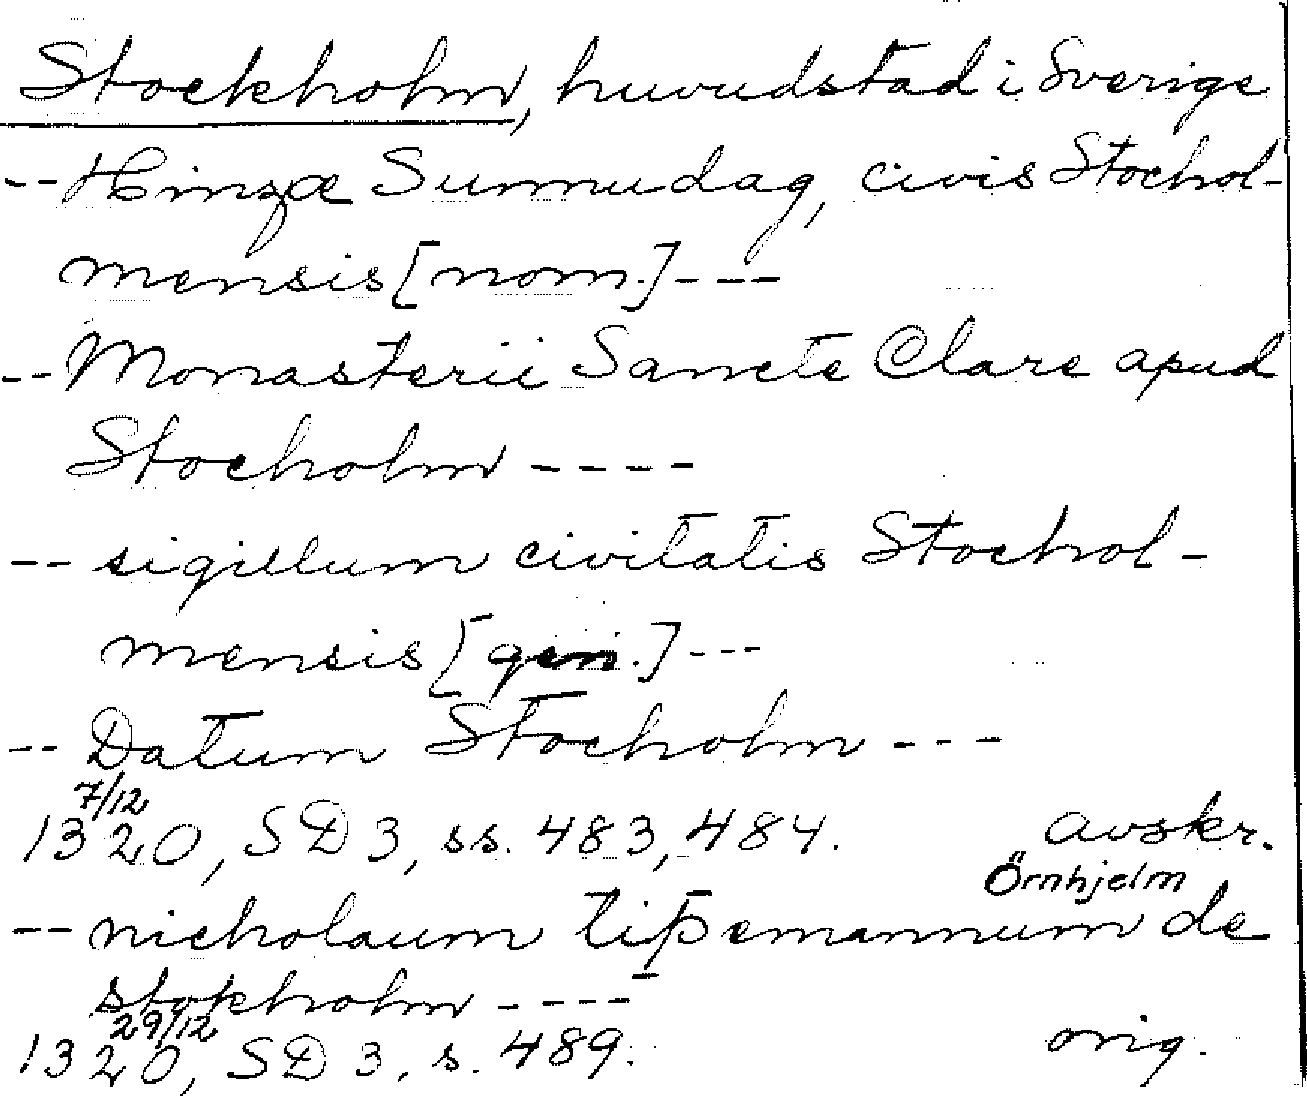 Stockholm, huvudstad i Sverige
-- Hinzæ Sunnudag, civis Stochol-
mensis [nom.] ---
-- Monasterii Sancte Clare apud
Stocholm ----
-- sigillum civitatis Stochol-
mensis [gen.] ---
-- Datum Stocholm ---
7/12
1320, SD 3, ss. 483, 484. avskr.
Örnhjelm
-- nicholaum tipemannum de
stokholm ----
29/12
1320, SD 3, s. 489. orig.